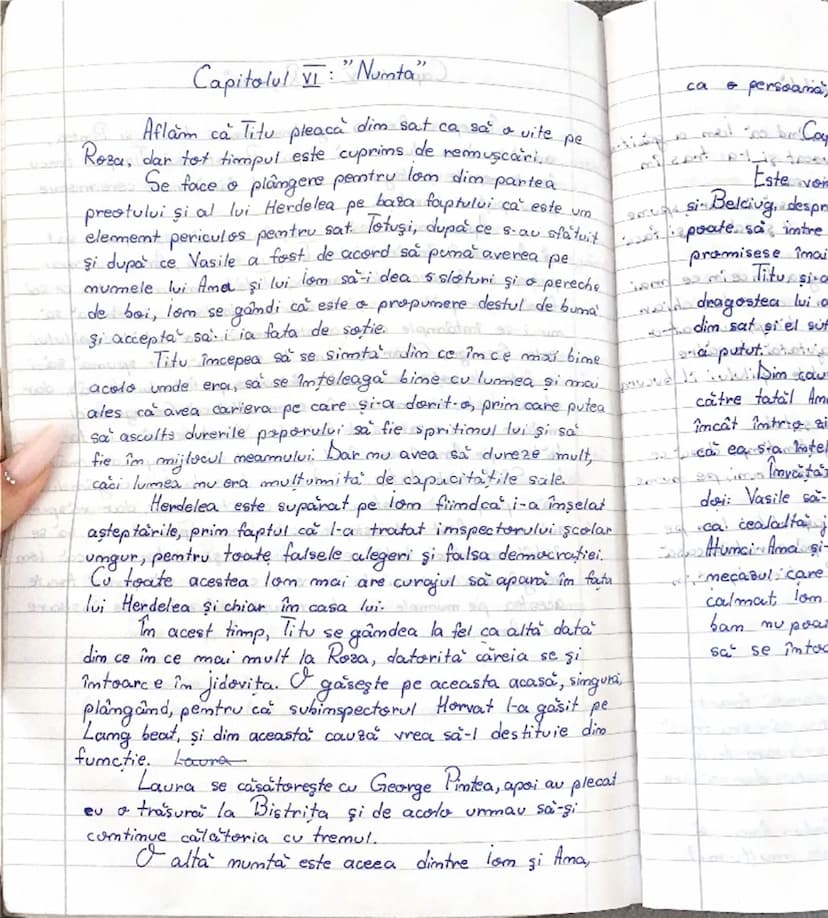 Capitolul VI: "Nunta"
Aflăm că Titu pleacă din sat ca să o uite pe
Roza, dar tot timpul este cuprins de remușcări.
Se face o plângere pentru Ion din partea
preotului și al lui Herdelea pe baza faptului că este un
element periculos pentru sat. Totuși, după ce s-au sfătuit
și după ce Vasile a fost de acord să pună averea pe
numele lui Ana și lui Ion să-i dea 5 sloturi și o pereche
de boi, Ion se gândi că este o propunere destul de bună
și acceptă să-i ia fata de soție.
Titu începea să se simtă din ce în ce mai bine
acolo unde era, să se înțeleagă bine cu lumea și mai
ales că avea cariera pe care și-a dorit-o, prin care putea
să asculte durerile poporului să fie spritinul lui și să
fie în mijlocul neamului. Dar nu avea să dureze mult,
căci lumea nu era mulțumită de capacitățile sale.
Herdelea este supărat pe Ion fiindcă i-a înșelat
așteptările, prin faptul că l-a tratat inspectorului școlar
ungur, pentru toate falsele alegeri și falsa democrației.
Cu toate acestea Ion mai are curajul să apară în fața
lui Herdelea și chiar în casa lui.
În acest timp, Titu se gândea la fel ca altă dată
din ce în ce mai mult la Roza, datorită căreia se și
întoarce în Jidovița. O găsește pe aceasta acasă, singură,
plângând, pentru că subinspectorul Horvat l-a găsit pe
Lang beat, și din această cauză vrea să-l destituie din
funcție. Laura
Laura se căsătorește cu George Pintea, apoi au plecat
cu o trăsură la Bistrița și de acolo urmau să-și
continue călătoria cu trenul.
O altă nuntă este aceea dintre Ion și Ana,
ca o persoană,
Este
și Belciug, despr
poate să intre
promisese înai
Titu și-a
dragostea lui
din sat și el
a putut.
Din cau
către tatăl An
încât într-o zi
că ea s-a înțel
Învăță
doi: Vasile să-
ca cealaltă j
Atunci Ana și-
necazul care
calmat, Ion
ban nu poa
să se întoc